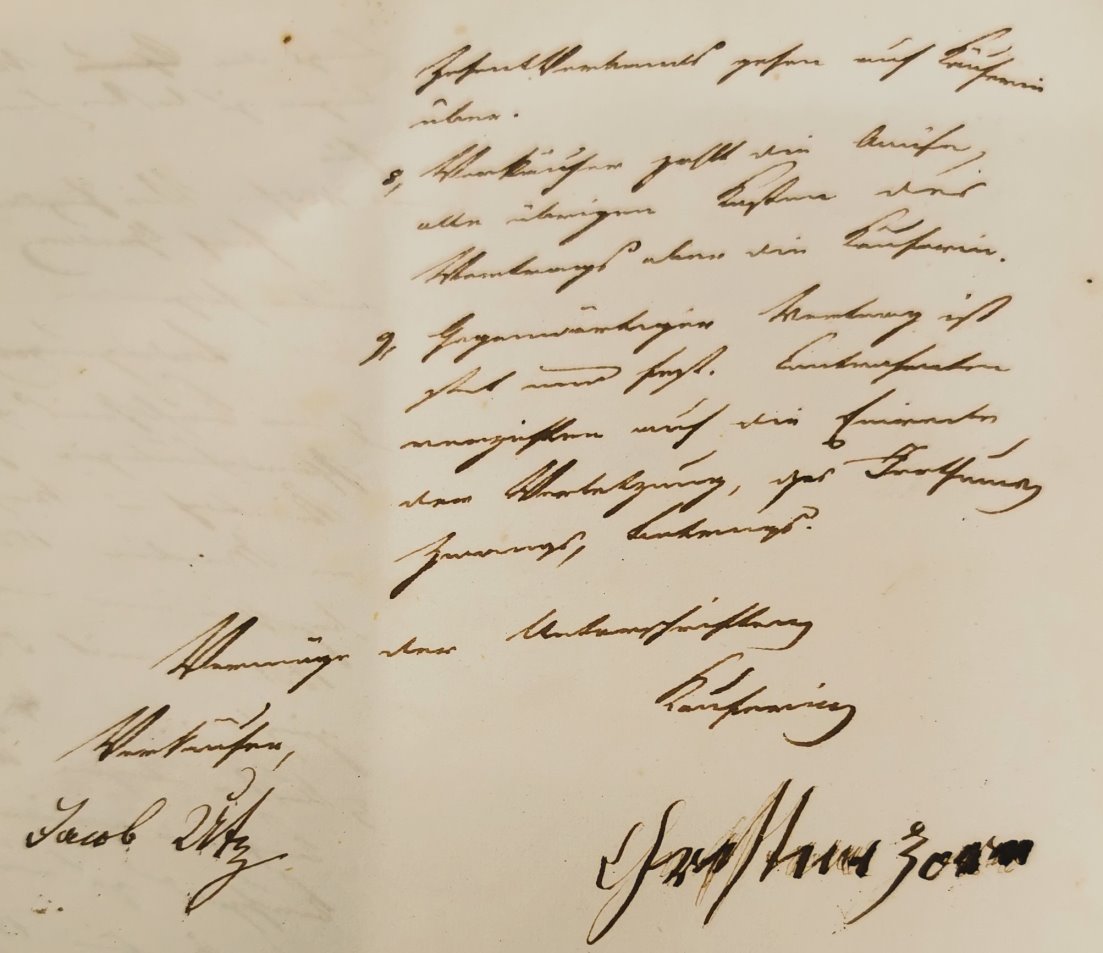 Zehent Verbands gehen auf Käuferin
über.
8, Verkäufer zahlt die Accise,
alle übrigen Kosten des
Vertrags aber die Käuferin.
9, Gegenwärtiger Vertrag ist
stet und fest. Contrahenten
verzichten auf die Einrede
der Verletzung, des Irrthums
Zwangs, Betrugs.
Vermöge der Unterschriften
Käuferin
Verkäufer,
Jacob Utz
Christine Zorn